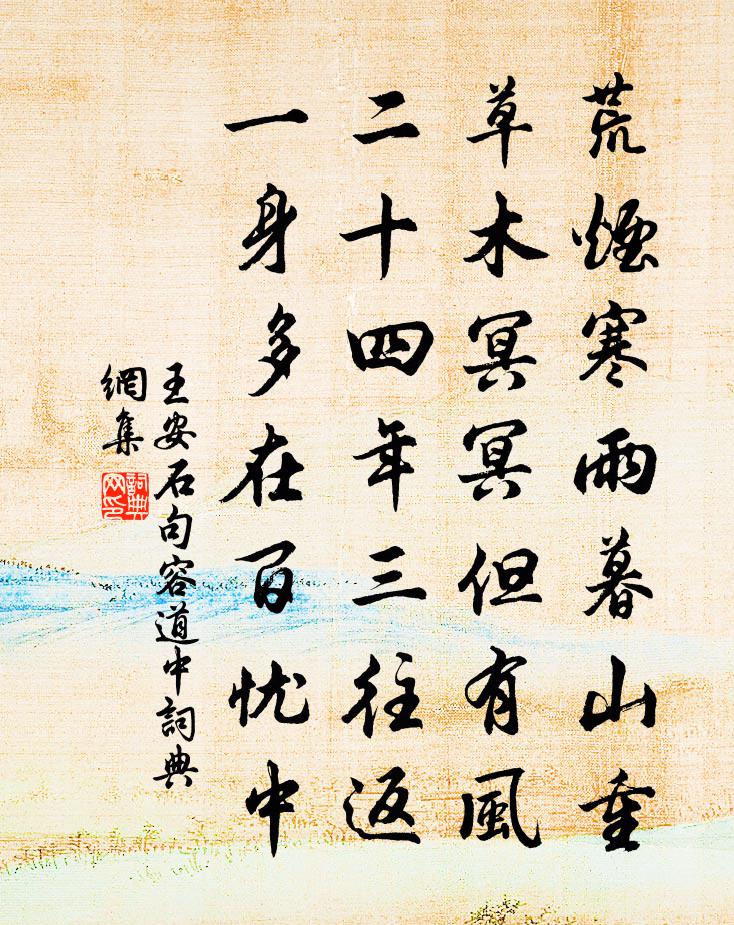 荒煙寒雨暮山重
草木冥冥但有風
二十四年三往返
一身多在百忧中
王安石句容道中詞典
網集
詞典
网印